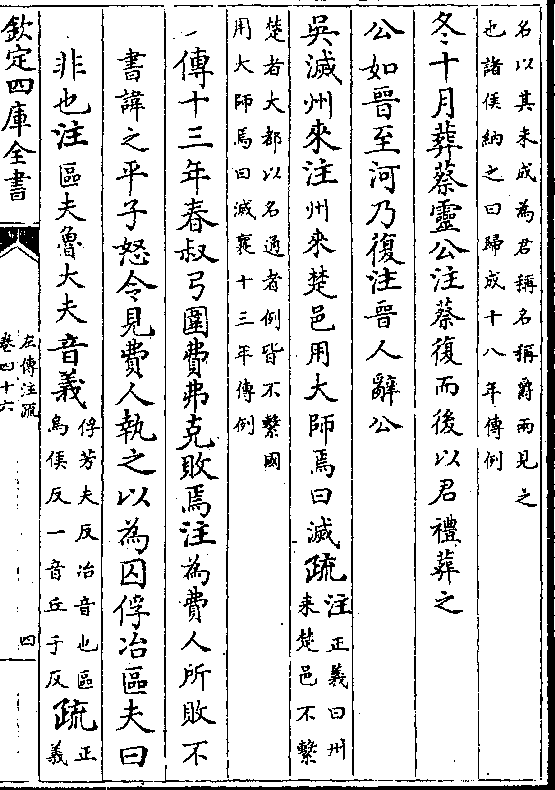 名以其未成為君稱名稱爵兩見之
也諸侯納之曰歸成十八年傳例
冬十月葬蔡靈公注蔡復而後以君禮葬之
公如晉至河乃復注晉人辭公
吳滅州來注州來楚邑用大師焉曰滅疏注正義曰州
來楚邑不繫
楚者大都以名通者例皆不繫國
用大師焉曰滅襄十三年傳例
傳十三年春叔弓圍費弗克敗焉注為費人所敗不
書諱之平子怒令見費人執之以為囚俘冶區夫曰
非也注區夫魯大夫音義俘芳夫反冶音也區
烏侯反一音丘于反疏正
義
欽定四庫全書
左傳注疏
卷四十六
四